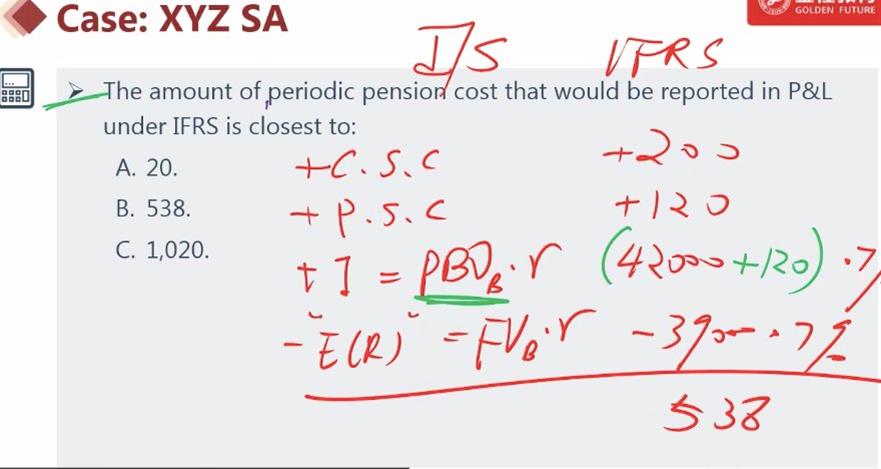 Case: XYZ SA
GOLDEN FUTURE
I/S IFRS
The amount of periodic pension cost that would be reported in P&L
under IFRS is closest to:
A. 20.
B. 538.
C. 1,020.
+C.S.C +200
+P.S.C +120
+I = PBO_B·r (42000+120)·7%
-"E(R)" = FV_B·r -39000·7%
538